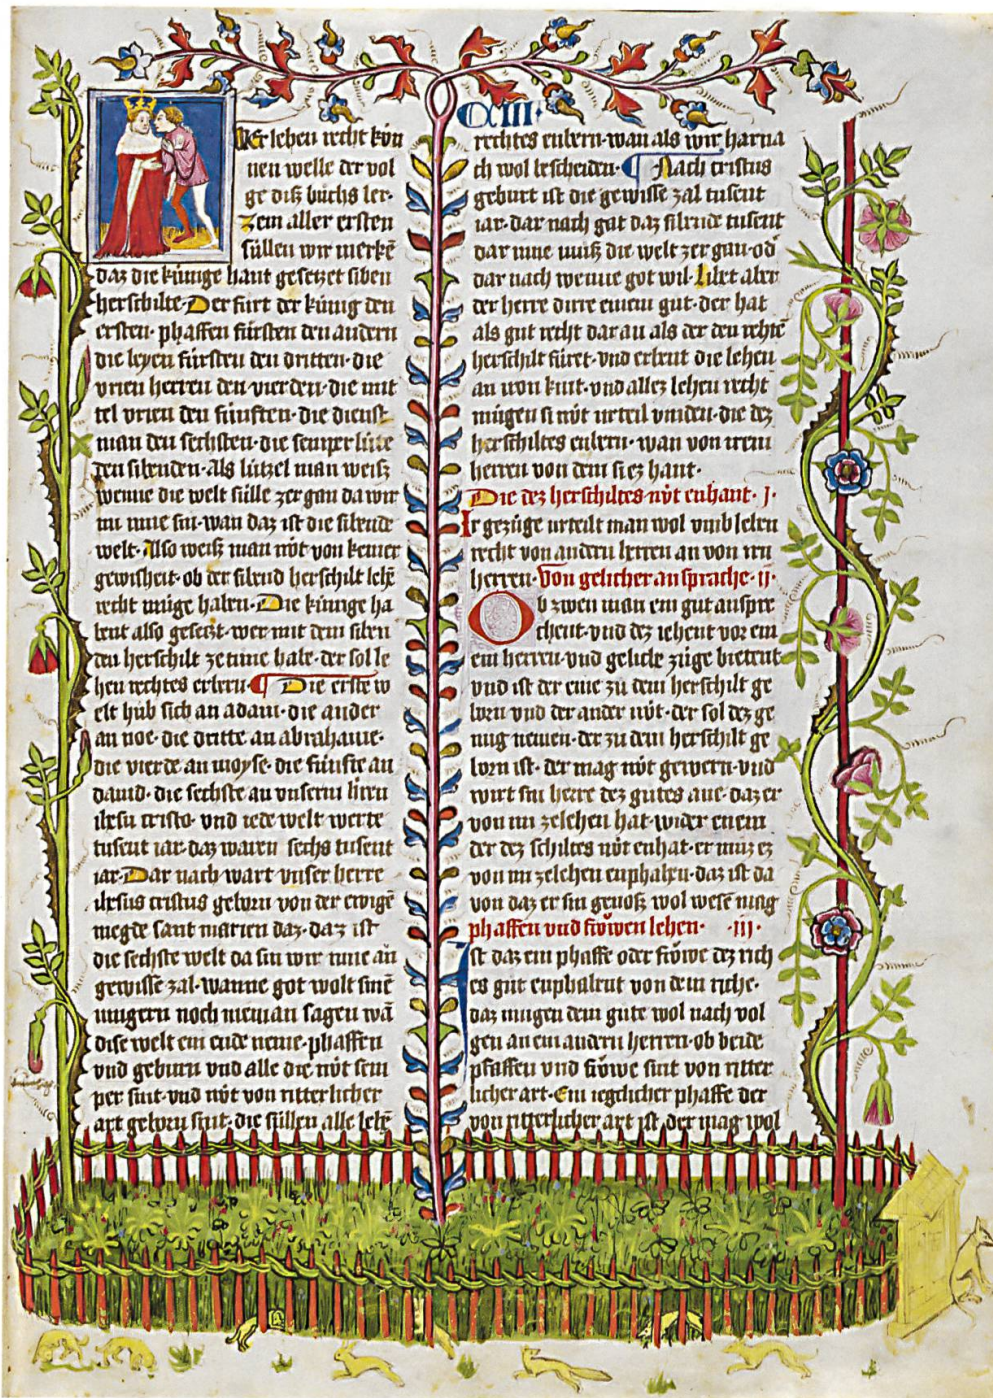 CXIII
Wer lehen recht kön
nen welle der vol
ge diſz bůchs ler·
Zem aller erſten
ſüllen wir merkē
daz die künige hant geſetzet ſiben
herſchilte· Der fürt der künig den
erſten· phaffen fürſten den andern
die leyen fürſten den dritten· die
vrien herren den vierden· die mit
tel vrien den fünften· die dienſt
man den ſechſten· die ſemper lüte
den ſibenden· als lützel man weiſz
wenne die welt fülle zergan da wir
nu inne ſin· wan daz iſt die ſibende
welt· Alſo weiſz man nöt von keiner
gewisheit· ob der ſibend herſchilt lehē
recht müge haben· Die künige ha
bent alſo geſetzt· wer mit dem ſiben
den herſchilt ze tüne habe· der ſol le
hen rechtes erbern· Die erſte w
elt hůb ſich an adam· die ander
an noe· die dritte an abrahame·
die vierde an moyſe· die fünfte an
dauid· die ſechſte an vnſerm herrn
iheſu criſto· vnd iede welt werte
tuſent iar· daz waren ſechs tuſent
iar· Dar nach wart vnſer herre
iheſus criſtus geborn von der ewigē
megde ſant marien daz· daz iſt
die ſechſte welt da ſin wir inne ān
gewiſſe zal· wanne got wolt ſinē
iungern noch nieman ſagen wā
diſe welt ein ende neme· phaffen
vnd geburn vnd alle die nöt ſem
per ſint· vnd nöt von ritterlicher
art geborn ſint· die ſüllen alle lehē
rechtes enbern· wan als wir harna
ch wol beſcheiden· Nach criſtus
geburt iſt die gewiſſe zal tuſent
iar· dar nach gat daz ſibende tuſent
dar inne můſz die welt zergan· od̄
dar nach wenne got wil· Lihet aber
der herre dirre einem gut· der hat
als gut recht dar an als der den rehtē
herſchilt füret· vnd erbent die lehen
an iron kint· vnd allez lehen recht
mügen ſi nöt urteil vinden· die dez
herſchiltes enbern· wan von irem
herren von dem ſi ez hant·
Die dez herſchiltes nöt enhant· I·
Ir gezüge urteilt man wol vmb lehen
recht von andern herren an von irn
herren· Von gelicher anſprache· II·
Ob zwen man ein gut anſpre
chent· vnd dez iehent vor ein
ein herren· vnd geliche züge bietent
vnd iſt der eine zu dem herſchilt ge
born vnd der ander nöt· der ſol dez ge
nüg nemen· der zu dem herſchilt ge
born iſt· der mag nöt gewern· vnd
wirt ſin herre dez gutes ane· daz er
von im ze lehen hat· wider einem
der dez ſchiltes nöt enhat· er můz ez
von im ze lehen enphahen· daz iſt da
von daz er ſin genoſz wol weſē mag
phaffen vnd frowen lehen· ·III·
Iſt daz ein phaffe oder frowe dez rich
es gůt enphahent von dem riche·
daz mugen dem gute wol nach vol
gen an ein andern herren· ob beide
pfaffen vnd frowe ſint von ritter
licher art· Ein iegclicher phaffe der
von ritterlicher art iſt· der mag wol